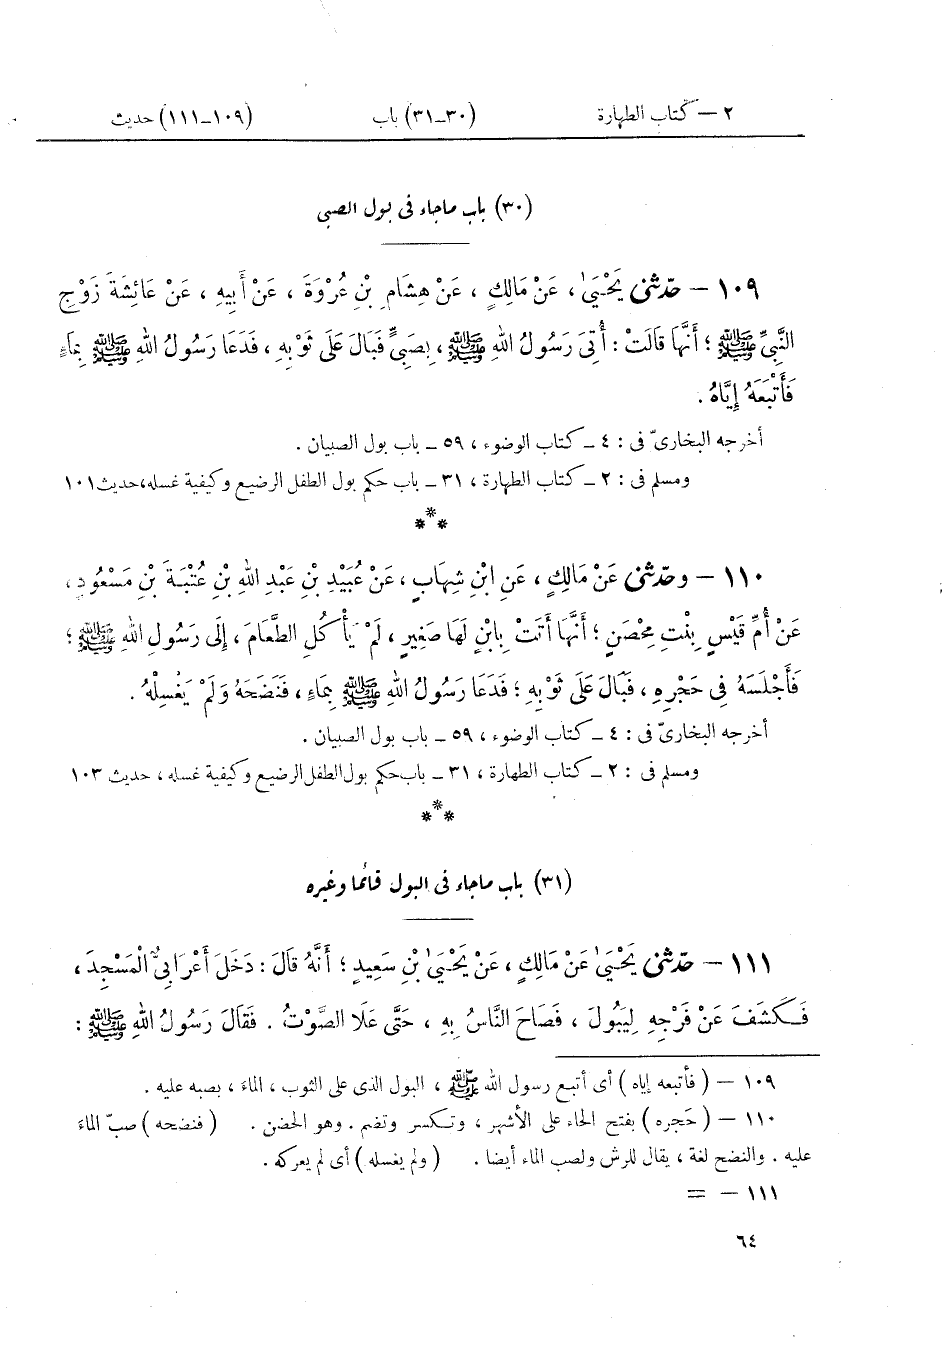 ٢ – كتاب الطهارة (٣٠–٣١) باب (١٠٩–١١١) حديث
(٣٠) باب ماجاء فى بول الصبي
١٠٩ – حدّثنى يَحْيَىٰ، عَنْ مَالِكٍ، عَنْ هِشَامِ بْنِ عُرْوَةَ، عَنْ أَبِيهِ، عَنْ عَائِشَةَ زَوْجِ
النَّبِيِّ ﷺ؛ أَنَّهَا قَالَتْ: أُتِىَ رَسُولُ اللهِ ﷺ، بِصَبِيٍّ فَبَالَ عَلَى ثَوْبِهِ، فَدَعَا رَسُولُ اللهِ ﷺ بِمَاءٍ
فَأَتْبَعَهُ إِيَّاهُ.
أخرجه البخارىّ فى: ٤ – كتاب الوضوء، ٥٩ – باب بول الصبيان.
ومسلم فى: ٢ – كتاب الطهارة، ٣١ – باب حكم بول الطفل الرضيع وكيفية غسله، حديث ١٠١
***
١١٠ – وحدّثنى عَنْ مَالِكٍ، عَنِ ابْنِ شِهَابٍ، عَنْ عُبَيْدِ بْنِ عَبْدِ اللهِ بْنِ عُتْبَةَ بْنِ مَسْعُودٍ،
عَنْ أُمِّ قَيْسٍ بِنْتِ مِحْصَنٍ؛ أَنَّهَا أَتَتْ بِابْنٍ لَهَا صَغِيرٍ، لَمْ يَأْكُلِ الطَّعَامَ، إِلَى رَسُولِ اللهِ ﷺ؛
فَأَجْلَسَهُ فِى حَجْرِهِ، فَبَالَ عَلَى ثَوْبِهِ؛ فَدَعَا رَسُولُ اللهِ ﷺ بِمَاءٍ، فَنَضَحَهُ وَلَمْ يَغْسِلْهُ.
أخرجه البخارىّ فى: ٤ – كتاب الوضوء، ٥٩ – باب بول الصبيان.
ومسلم فى: ٢ – كتاب الطهارة، ٣١ – باب حكم بول الطفل الرضيع وكيفية غسله، حديث ١٠٣
***
(٣١) باب ماجاء فى البول قائما وغيره
١١١ – حدّثنى يَحْيَىٰ عَنْ مَالِكٍ، عَنْ يَحْيَىٰ بْنِ سَعِيدٍ؛ أَنَّهُ قَالَ: دَخَلَ أَعْرَابِىٌّ الْمَسْجِدَ،
فَكَشَفَ عَنْ فَرْجِهِ لِيَبُولَ، فَصَاحَ النَّاسُ بِهِ، حَتَّى عَلَا الصَّوْتُ. فَقَالَ رَسُولُ اللهِ ﷺ:
١٠٩ – (فأتبعه إياه) أى أتبع رسول الله ﷺ، البول الذى على الثوب، الماءَ، بصبه عليه.
١١٠ – (حَجره) بفتح الحاء على الأشهر، وتكسر وتضم. وهو الحضن. (فنضحه) صبّ الماءَ
عليه. والنضح لغة، يقال للرش ولصب الماء أيضا. (ولم يغسله) أى لم يعركه.
١١١ – =
٦٤